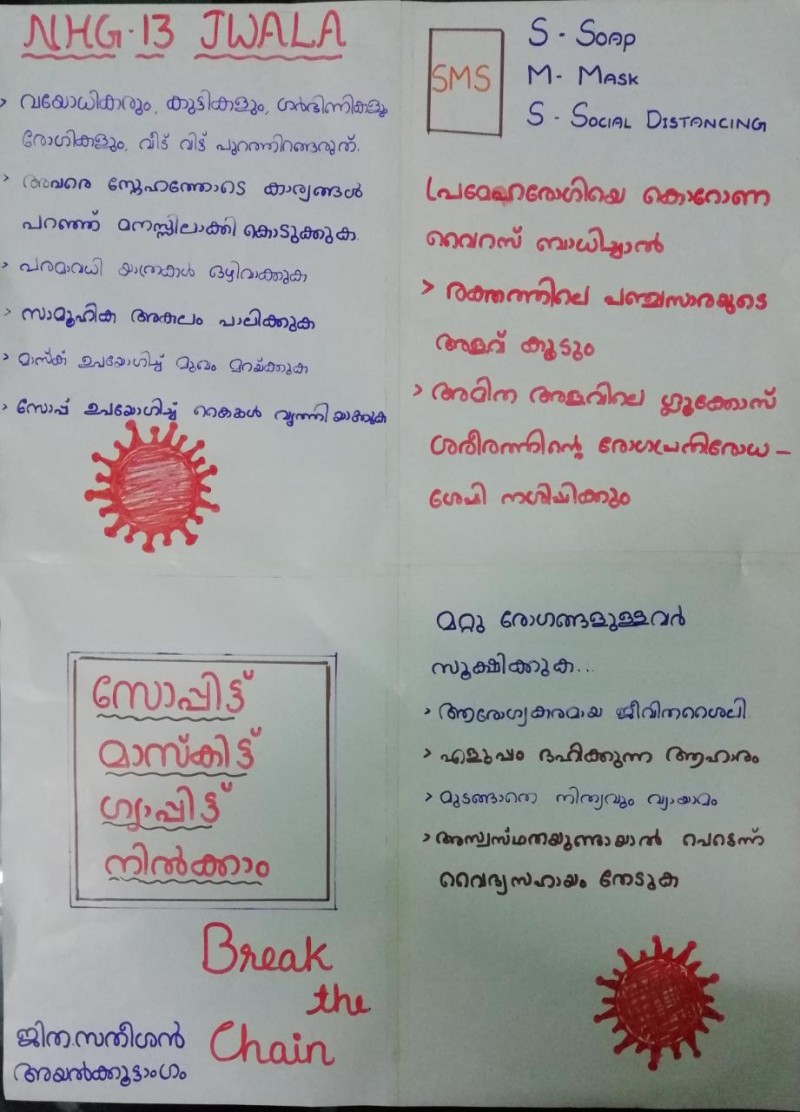 NHG-13 JWALA
> വയോധികരും, കുട്ടികളും, ഗർഭിണികളും
രോഗികളും, വീട് വിട്ട് പുറത്തിറങ്ങരുത്.
> അവരെ സ്നേഹത്തോടെ കാര്യങ്ങൾ
പറഞ്ഞ് മനസ്സിലാക്കി കൊടുക്കുക.
> പരമാവധി യാത്രകൾ ഒഴിവാക്കുക
> സാമൂഹിക അകലം പാലിക്കുക
> മാസ്ക് ഉപയോഗിച്ച് മുഖം മറയ്ക്കുക
> സോപ്പ് ഉപയോഗിച്ച് കൈകൾ വൃത്തിയാക്കുക
SMS
S - SOAP
M - MASK
S - SOCIAL DISTANCING
പ്രമേഹരോഗിയെ കൊറോണ
വൈറസ് ബാധിച്ചാൽ
> രക്തത്തിലെ പഞ്ചസാരയുടെ
അളവ് കൂടും
> അമിത അളവിലെ ഗ്ലൂക്കോസ്
ശരീരത്തിന്റെ രോഗപ്രതിരോധ-
ശേഷി നശിപ്പിക്കും
സോപ്പിട്ട്
മാസ്കിട്ട്
ഗ്യാപ്പിട്ട്
നിൽക്കാം
Break
the
Chain
ജിത.സതീശൻ
അയൽക്കൂട്ടാംഗം
മറ്റു രോഗങ്ങളുള്ളവർ
സൂക്ഷിക്കുക...
> ആരോഗ്യകരമായ ജീവിതശൈലി
> എളുപ്പം ദഹിക്കുന്ന ആഹാരം
> മുടങ്ങാതെ നിത്യവും വ്യായാമം
> അസ്വസ്ഥതയുണ്ടായാൽ പെട്ടെന്ന്
വൈദ്യസഹായം തേടുക